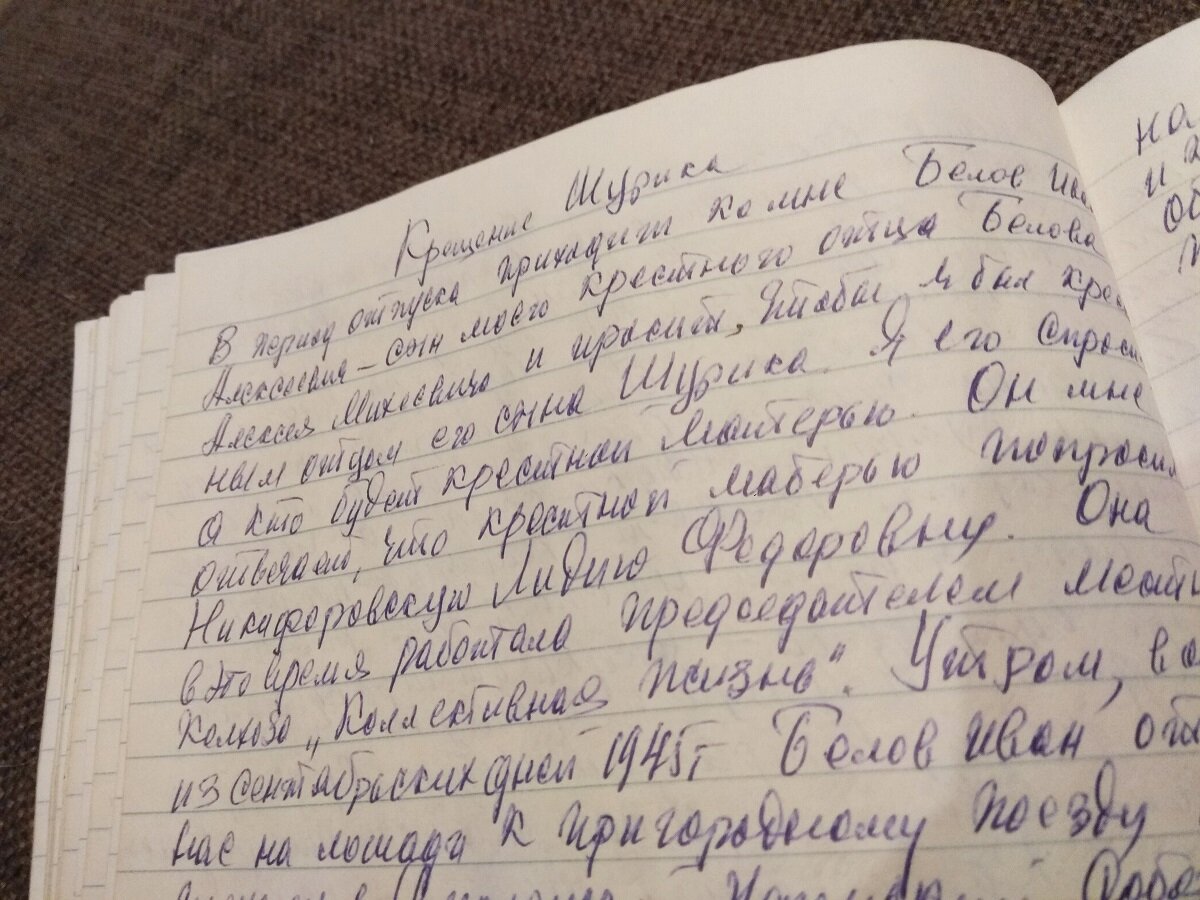 Крещение Шурика
В период отпуска приходит ко мне Белов Ива
Алексеевич – сын моего крестного отца Белова
Алексея Михеевича и просит, чтобы я был крес
ным отцом его сына Шурика. Я его спроси
а кто будет крестной матерью. Он мне
отвечает, что крестной матерью попросил
Никифоровскую Лидию Федоровну. Она
в это время работала председателем местн
колхоза „Коллективная жизнь". Утром, в од
из сентябрьских дней 1945 г Белов Иван отв
нас на лошади к пригородному поезду
на
и
об